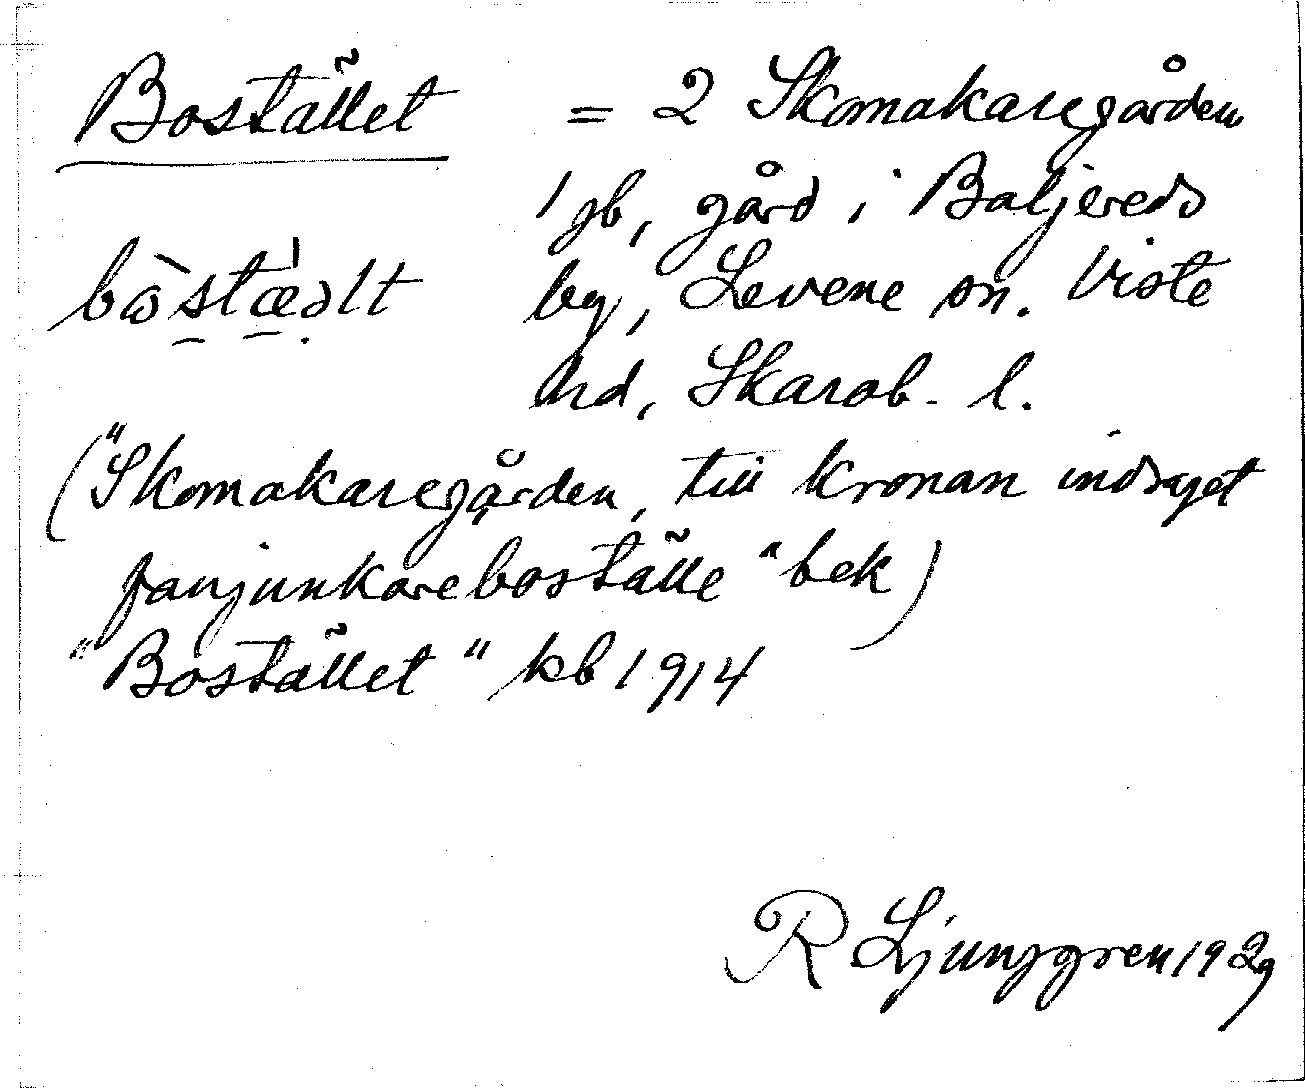 Bostället = 2 Skomakaregården
1 gb, gård i Baljereds
by, Levene sn. Viste
hd, Skarab. l.
("Skomakaregården, till kronan indraget
fanjunkareboställe" bek)
"Bostället" kb 1914
R Ljunggren 1929